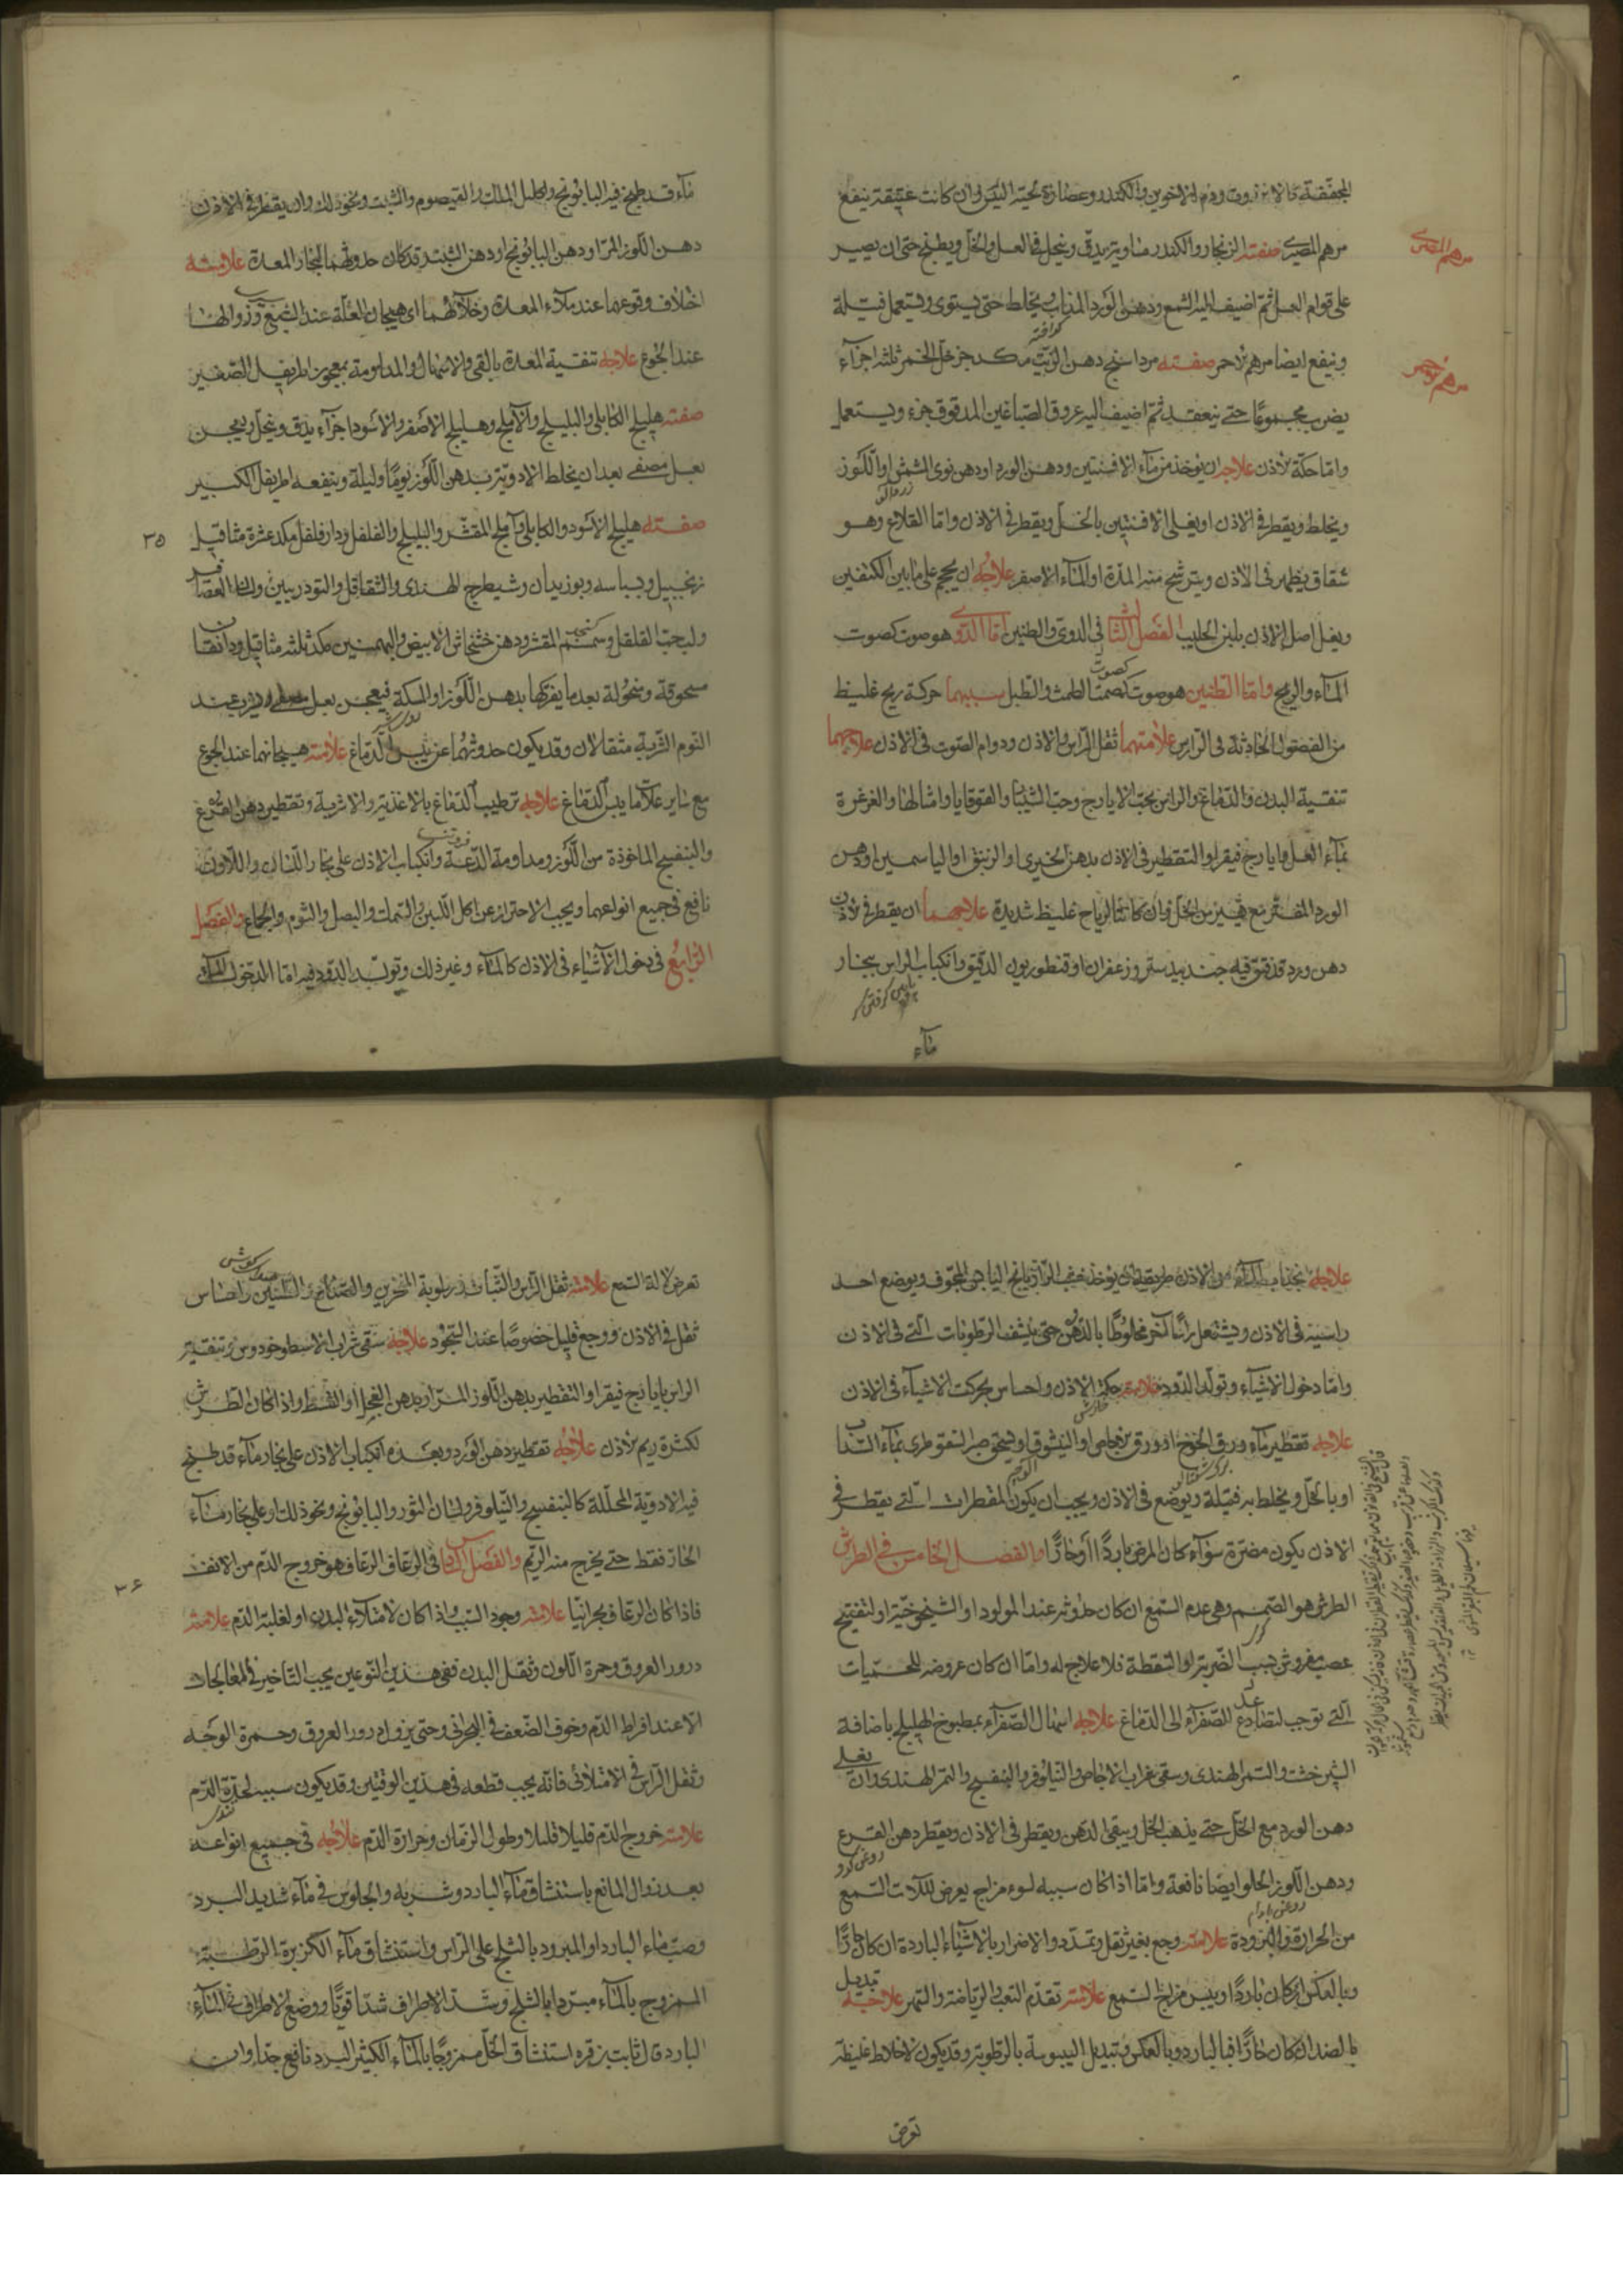 المجففة كالانزروت ودم الاخوين والكندر وعصارة لحية التيس وان كانت عتيقة ينفع
مرهم المصرى صفته الزنجار والكندر مناويته يدق وينخل فى العسل والخل ويطبخ حتى ان يصير
على قوام العسل ثم اضيف اليه الشمع ودهن الورد المذاب ويخلط حتى يستوى ويستعمل فتيلة
وينفع ايضا مرهم الاحمر صفته مرداسنج دهن الزيت مكد جزء خل الخمر ثلثه اجزآء
يضرب مجموعا حتى ينعقد ثم اضيف اليه عروق الصباغين المدقوق جزء ويستعمل
واما حكة الاذن علاجه ان يؤخذ من مآء الافسنتين ودهن الورد او دهن نوى المشمش او اللوز
ويخلط ويقطر فى الاذن او يغلى الافسنتين بالخل ويقطر فى الاذن واما القلاع وهو
شقاق يظهر فى الاذن ويترشح منه المدة او المآء الاصفر علاجه ان يحجم على ما بين الكتفين
ويغل اصل الاذن بلبن الحليب الفصل الثالث فى الدوى والطنين اما الدوى هو صوت كصوت
المآء والريح واما الطنين هو صوت كصوت الطمث والطبل سببهما حركة ريح غليظ
من الفضول الحادثة فى الراس علامتهما ثقل الراس والاذن ودوام الصوت فى الاذن علاجهما
تنقية البدن والدماغ والراس بحب الايارج وحب الشبيار والقوقايا وامثالها والغرغرة
بمآء العسل وايارج فيقرا والتقطير فى الاذن بدهن الخيرى والزنبق او الياسمين او دهن
الورد المفتر مع يسير من الخل وان كانتا لرياح غليظ شديدة علاجهما ان يقطر فى الاذن
دهن ورد قد فتق فيه جندبيدستر وزعفران او قنطوريون الدقيق وانكباب الراس ببخار
مآء
مرهم المصرى
مرهم احمر
مآء قد طبخ فيه البابونج واكليل الملك والقيصوم والشبت ونحو ذلك وان يقطر فى الاذن
دهن اللوز المر او دهن البابونج او دهن الشبت وقد كان حدوثهما لبخار المعدة علامته
اختلاف وقوعهما عند ملآء المعدة وخلآئهما اى هيجان العلة عند الشبع وزوالها
عند الجوع علاجه تنقية المعدة بالقى والاسهال والمداومة بمعجون اطريفل الصغير
صفته هليلج الكابلى والبليلج والآملج وهليلج الاصفر والاسود اجزآء يدق وينخل ويعجن
بعسل مصفى بعد ان يخلط الادوية بدهن اللوز يوما وليلة وينفعه اطريفل الكبير
صفته هليلج الاسود والكابلى وآملج المقشر والبليلج والفلفل ودار فلفل مكد عشرة مثاقيل
زنجبيل وبسباسه وبوزيدان وشيطرج الهندى والشقاقل والتودريين ولسان العصافير
ولب حب القلقل وسمسم المقشر ودهن خشخاش الابيض والبهمنين مكد ثلثه مثاقيل ودانقان
مسحوقة ومنخولة بعد ما يفركها بدهن اللوز او المسكة فيعجن بعسل مصفى ويشرب عند
النوم الشربة مثقالان وقد يكون حدوثهما عن يبس الدماغ علامته هيجانهما عند الجوع
مع ساير علامات يبس الدماغ علاجه ترطيب الدماغ بالاغذية والاشربة وتقطير دهن القرع
والبنفسج الماخوذة من اللوز ومداومة الدعة وانكباب الاذن على بخار واللادن
نافع فى جميع انواعهما ويجب الاحتراز عن اكل اللبن والسمك والبصل والثوم والجماع والفصل
الرابع فى دخول الآشياء فى الاذن كالمآء وغير ذلك وتولد الدود فيه اما الدخول المآء
٢٥
علاجه نجذب المآء من الاذن طريقه ان يؤخذ خشب الرازيانج اليابس المجوف ويوضع احد
راسيه فى الاذن ويشتعل راس آخر مخلوطا بالدهن حتى ينشف الرطوبات التى فى الاذن
واما دخول الاشياء وتولد الدود علامته حكة الاذن واحساس بحركت الاشيآء فى الاذن
علاجه تقطير مآء ورق الخوخ او ورق او يسحق صبر السقوطرى بمآء السداب
او بالخل ويخلط به فتيلة ويوضع فى الاذن ويجب ان يكون المقطرات التى يقطر فى
الاذن يكون مفترة سوآء كان المرض باردا او حارا والفصل الخامس فى الطرش
الطرش هو الصمم وهى عدم السمع ان كان حدوثه عند المولود او الشيخوخية او لتفتيح
عصب مفروش بسبب الضربة او السقطة فلا علاج له واما ان كان عروضه للحميات
التى توجب لتصاعد الصفرآء الى الدماغ علاجه اسهال الصفرآء بمطبوخ الهليلج باضافة
الشيرخشت والتمر الهندى وسقى شراب الاجاص والنيلوفر والبنفسج والتمر الهندى وان يغلى
دهن الورد مع الخل حتى يذهب الخل ويبقى الدهن ويقطر فى الاذن ويقطر دهن القرع
ودهن اللوز الحلو ايضا نافعة واما اذا كان سببه لسوء مزاج يعرض لآلات السمع
من الحرارة والبرودة علامته وجع بغير ثقل وتمدد والاضرار بالاشياء الباردة ان كان حارا
وبالعكس ان كان باردا او يبس مزاج السمع علامته تقدم التعب والرياضة والسهر علاجه تبديل
بالضد ان كان حارا فبالبارد وبالعكس وتبديل اليبوسة بالرطوبة وقد يكون لاخلاط غليظة
تعرض
تعرض لآلة السمع علامته ثقل الراس والثبات ورطوبة المنخرين والصداع والطنين واحساس
ثقل فى الاذن ووجع قليل خصوصا عند السجود علاجه سقى شراب الاسطوخودوس وتنقية
الراس بايارج فيقرا والتقطير بدهن اللوز المر او بدهن الفجل او القسط واذا كان الطرش
لكثرة ريم الاذن علاجه تقطير دهن الورد وبعده انكباب الاذن على بخار مآء قد طبخ
فيه الادوية المحللة كالبنفسج والنيلوفر ولسان الثور والبابونج ونحو ذلك او على بخار مآء
الحار فقط حتى يخرج منه الريم والفصل السادس فى الرعاف الرعاف هو خروج الدم من الانف
فاذا كان الرعاف بحرانيا علامته وجود السبب واذا كان لامتلآء البدن او لغلبة الدم علامته
درور العروق وحمرة اللون وثقل البدن ففى هذين النوعين يجب التاخير فى المعالجات
الا عند افراط الدم وخوف الضعف فى البحرانى وحتى يزول درور العروق وحمرة الوجه
وثقل الراس فى الامتلائى فانه يجب قطعه فى هذين الوقتين وقد يكون سببه لحدة الدم
علامته خروج الدم قليلا قليلا وطول الزمان وحرارة الدم علاجه فى جميع انواعه
بعد زوال المانع باستنشاق مآء البارد وشربه والجلوس فى مآء شديد البرد
وصب مآء البارد او المبرود بالثلج على الراس واستنشاق مآء الكزبرة الرطبة
الممزوج بالمآء مبردا بالثلج وشد الاطراف شدا قويا ووضع الاطراف فى المآء
البارد قال ثابت بن قره استنشاق الخل ممزوجا بالمآء الكثير البرد نافع جدا وان
٢٦